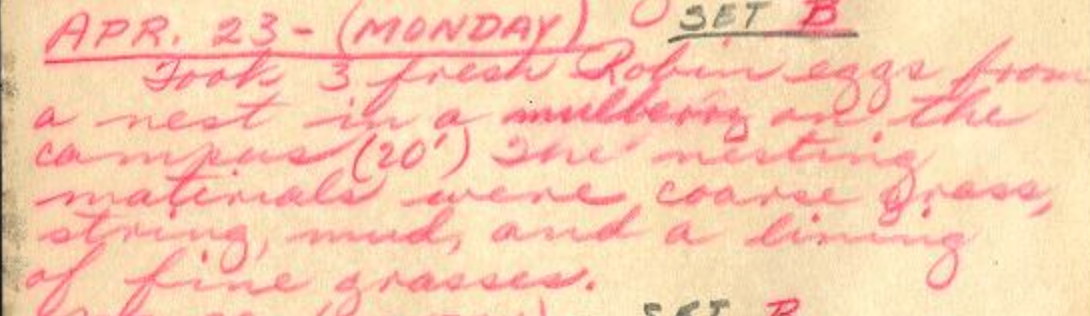 APR. 23 - (MONDAY) SET B
Took 3 fresh Robin eggs from
a nest in a mulberry on the
campus (20') The nesting
materials were coarse grass,
string, mud, and a lining
of fine grasses.
SET B